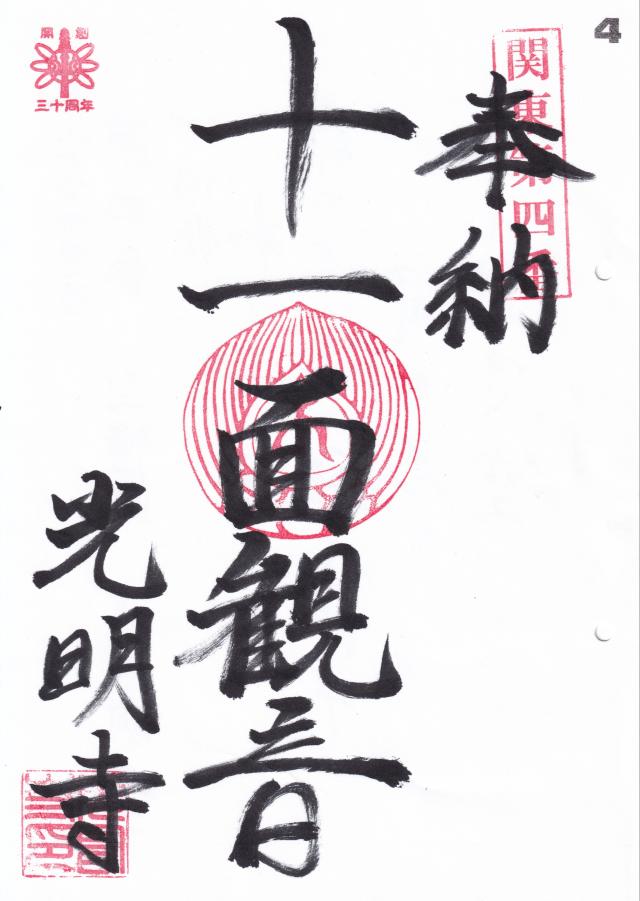 4
関東第四番
奉納
十一面観音
光明寺
開創
三十周年